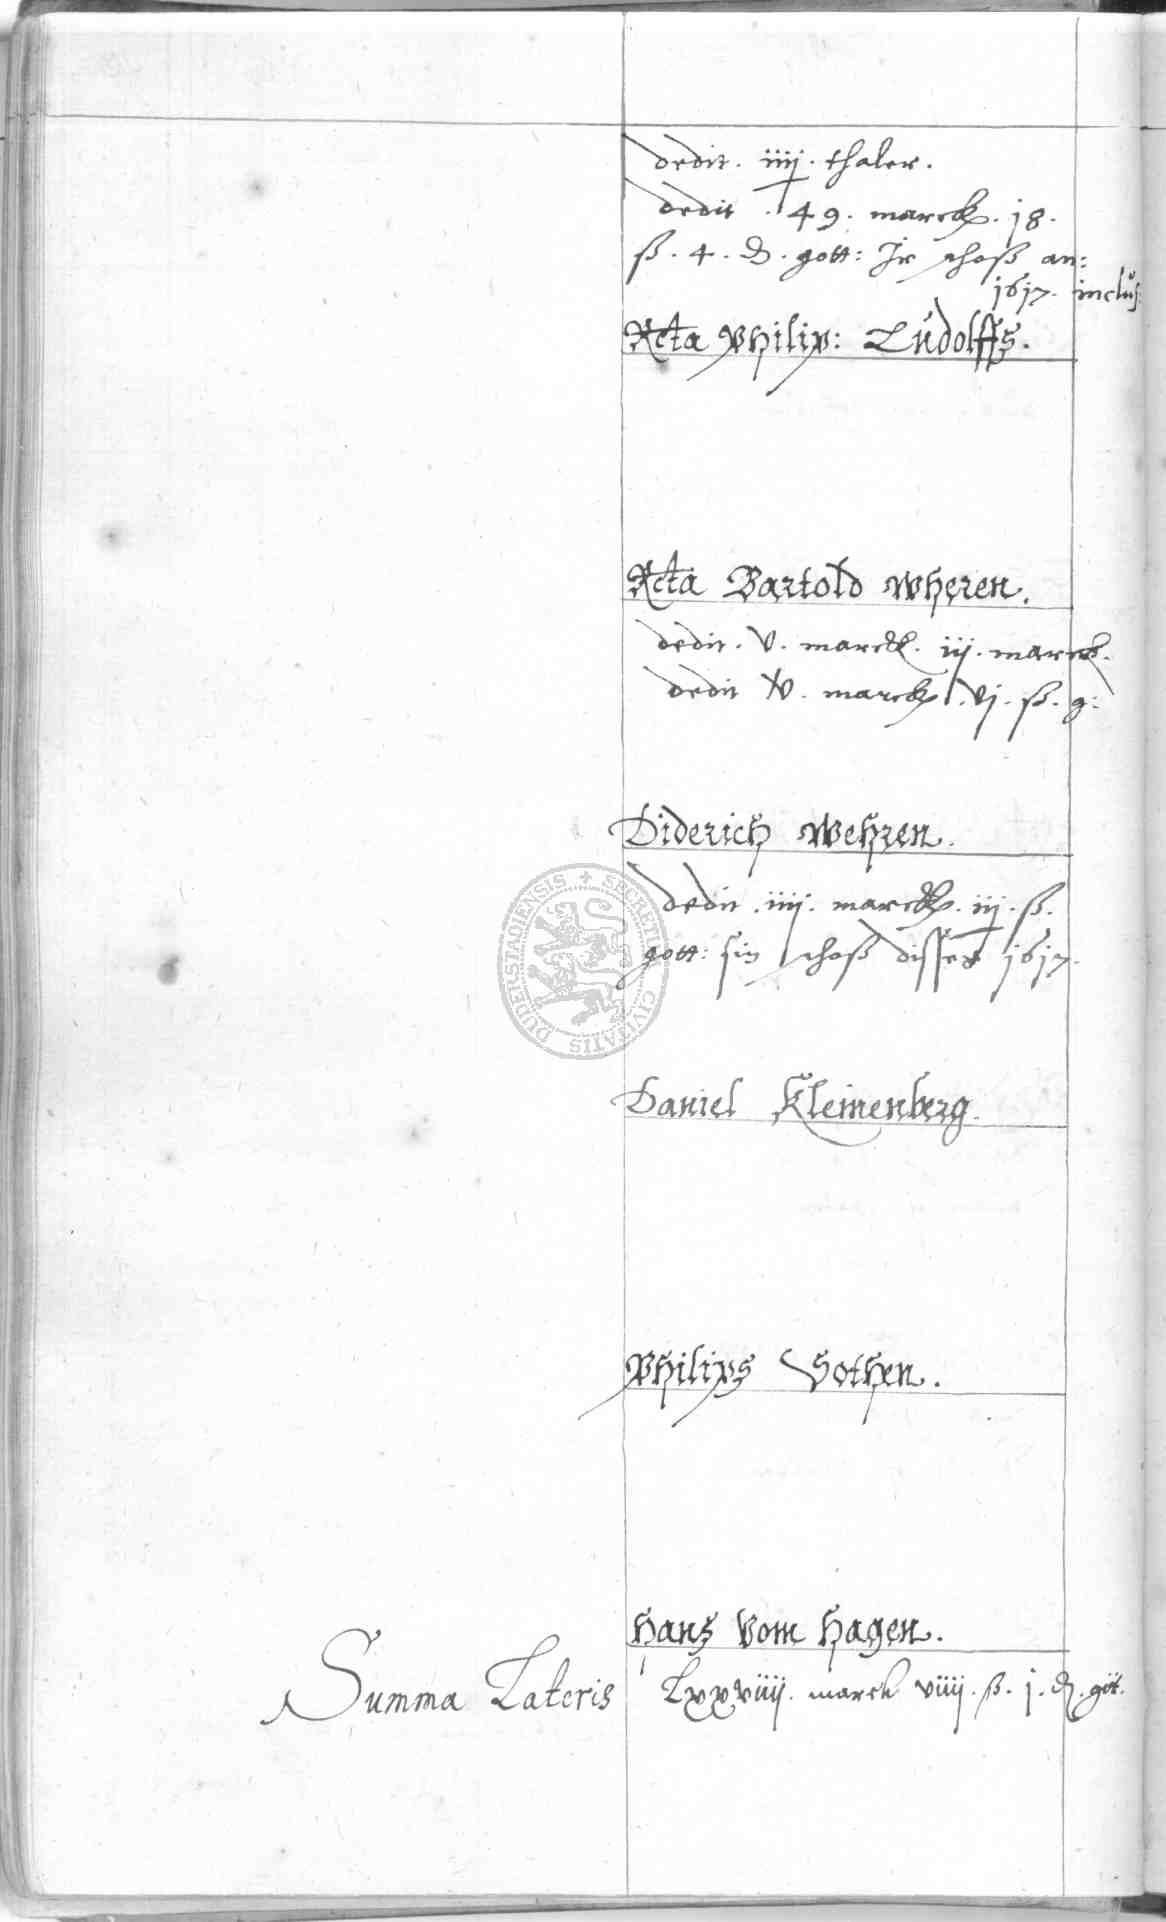 dedit. iiij. thaler.
dedit. 49. marck. 18.
ß. 4. d. gott: Jr schoß an:
1617. inclus:
Rcta Philip: Ludolffs.
Rcta Bartold Wheren.
dedit. v. marck. iij. marck.
dedit v. marck. vj. ß. g:
Diderich Wehren.
dedit. iiij. marck. iij. ß.
gott: sin schoß disses 1617.
SECRETI CIVITATIS DUDERSTADIENSIS
Daniel Kleinenberg.
Philips Vothen.
Hans vom Hagen.
Summa Lateris Lxxviiij. marck viiij. ß. j. d. gott.